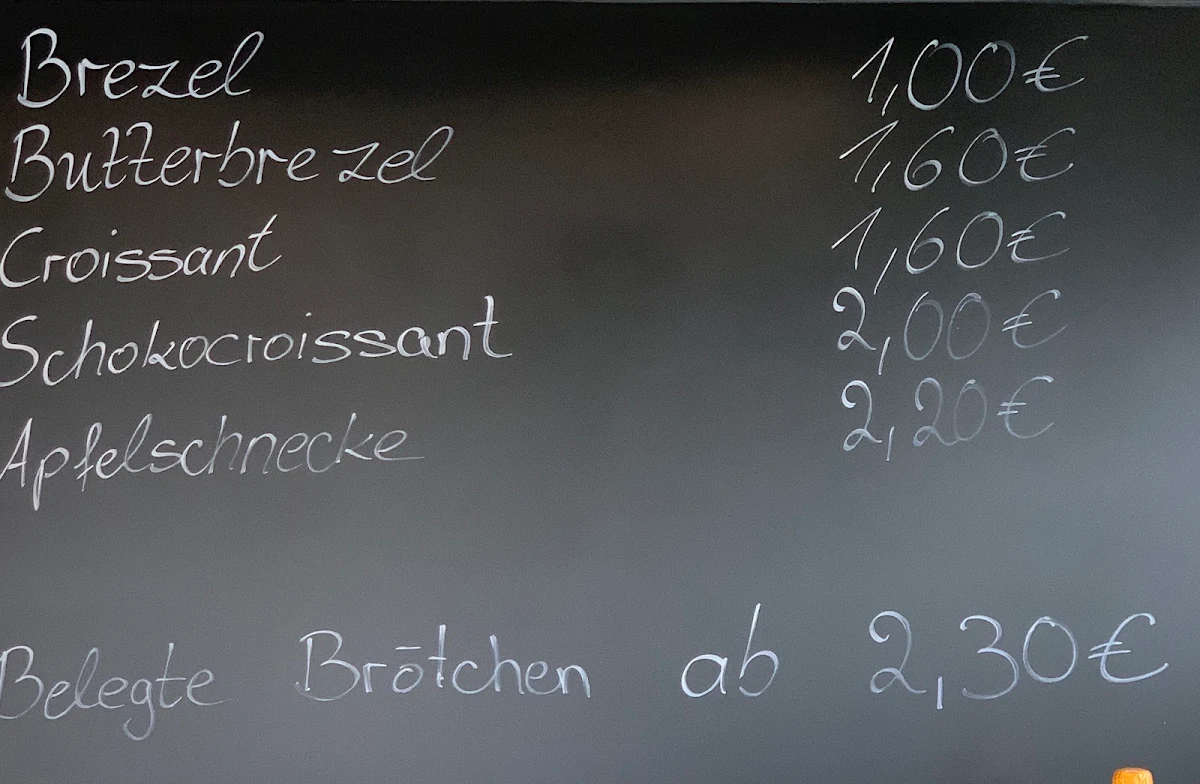 Brezel 1,00€
Butterbrezel 1,60€
Croissant 1,60€
Schokocroissant 2,00€
Apfelschnecke 2,20€
Belegte Brötchen ab 2,30€